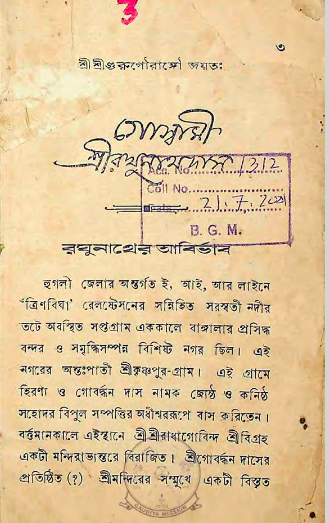 ৩
৩
শ্রীশ্রীগুরুগৌরাঙ্গৌ জয়তঃ
গোস্বামী
শ্রীরঘুনাথদাস
Acc. No. 1312
Coll No.
Date 21.7.2021
B. G. M.
রঘুনাথের আবির্ভাব
হুগলী জেলার অন্তর্গত ই, আই, আর লাইনে
‘ত্রিণবিঘা’ রেলস্টেসনের সন্নিহিত সরস্বতী নদীর
তটে অবস্থিত সপ্তগ্রাম এককালে বাঙ্গালার প্রসিদ্ধ
বন্দর ও সমৃদ্ধিসম্পন্ন বিশিষ্ট নগর ছিল। এই
নগরের অন্তঃপাতী শ্রীকৃষ্ণপুর-গ্রাম। এই গ্রামে
হিরণ্য ও গোবর্দ্ধন দাস নামক জ্যেষ্ঠ ও কনিষ্ঠ
সহোদর বিপুল সম্পত্তির অধীশ্বররূপে বাস করিতেন।
বর্ত্তমানকালে এইস্থানে শ্রীশ্রীরাধাগোবিন্দ শ্রীবিগ্রহ
একটী মন্দিরাভ্যন্তরে বিরাজিত। শ্রীগোবর্দ্ধন দাসের
প্রতিষ্ঠিত (?) শ্রীমন্দিরের সম্মুখে একটী বিস্তৃত
GAUDIYA MUSEUM